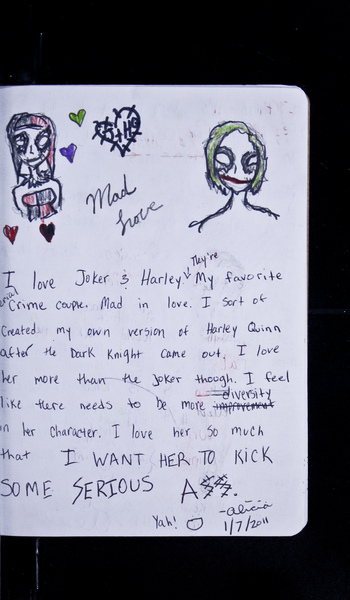 J + H
Mad
Love
They're
I love Joker & Harley. My favorite
Crime couple. Mad in love. I sort of
created my own version of Harley Quinn
after the Dark Knight came out. I love
her more than the Joker though. I feel
diversity
like there needs to be more improvement
in her character. I love her so much
that I WANT HER TO KICK
SOME SERIOUS A$$.
Yah!
-alicia
1/7/2011